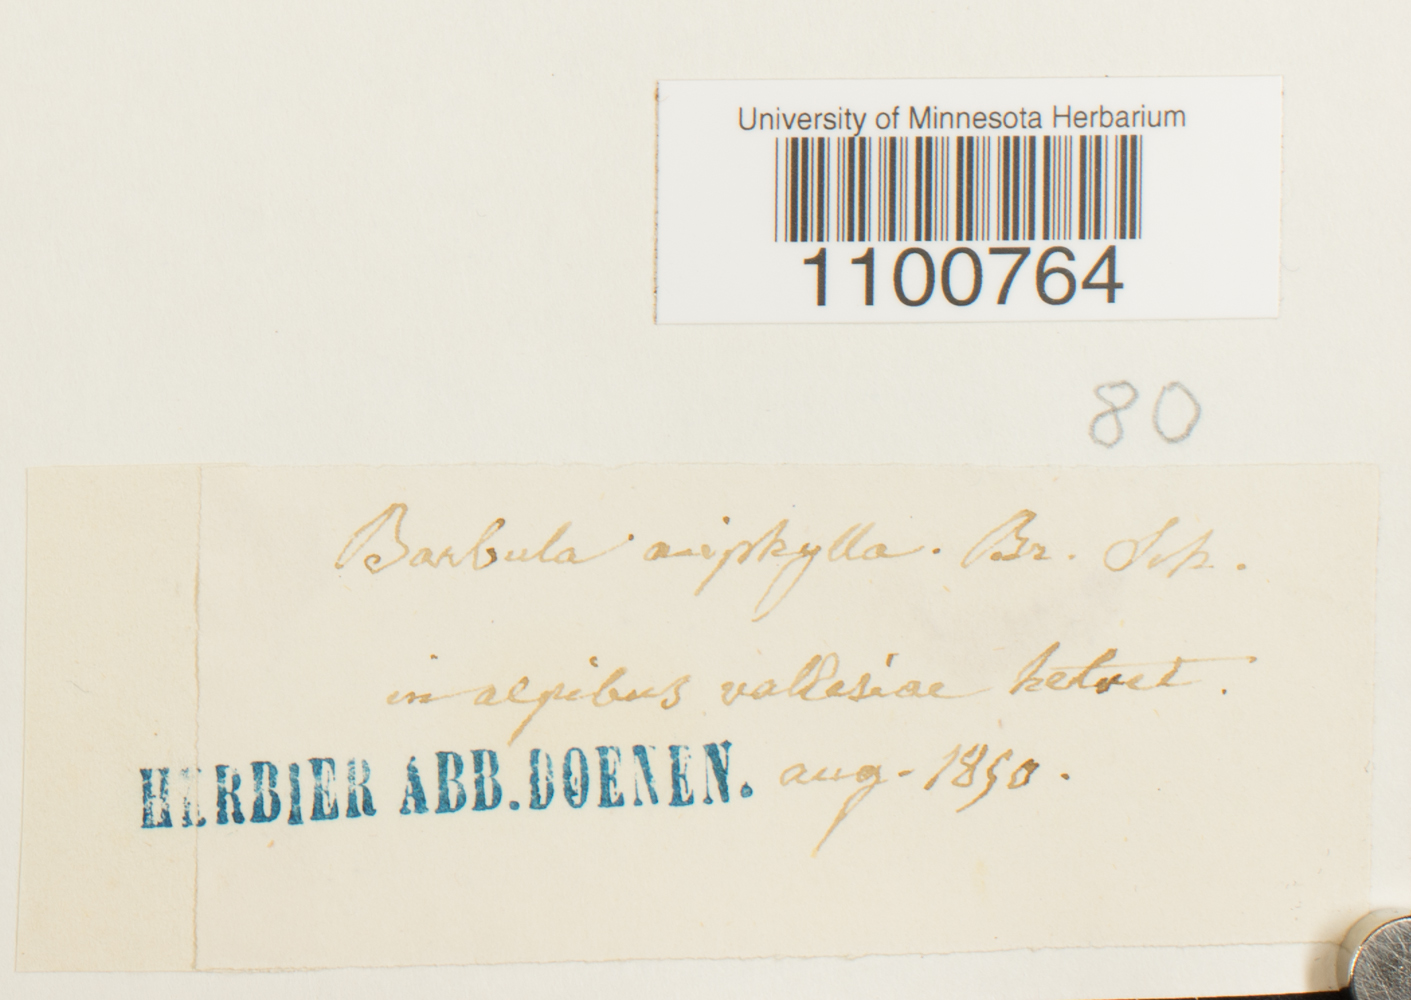 University of Minnesota Herbarium
1100764
80
Barbula aciphylla. Br. Sch.
in alpibus vallesiae helvet.
HERBIER ABB. DOENEN. aug. 1850.